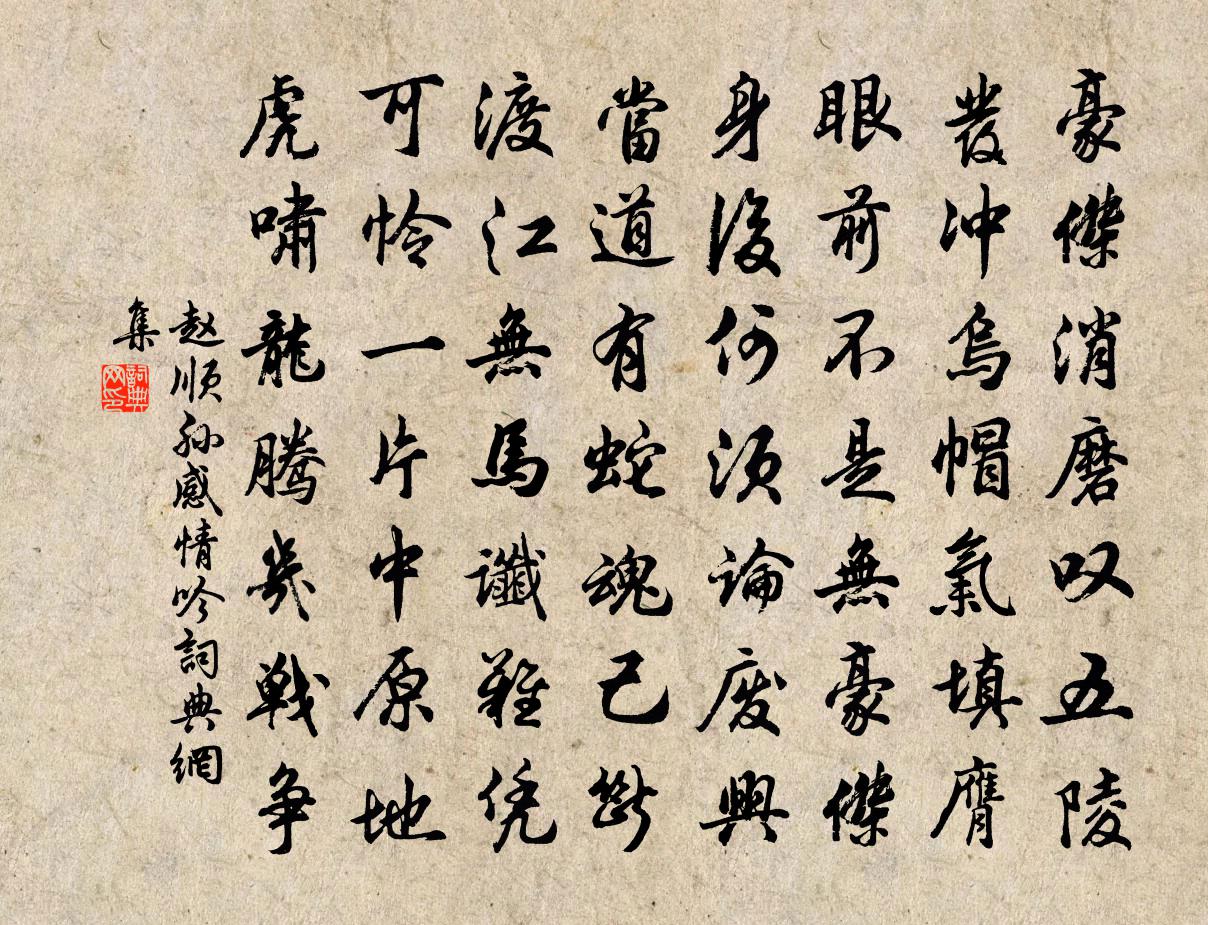 豪傑消磨叹五陵
發冲烏帽氣填膺
眼前不是無豪傑
身後何須論廢興
當道有蛇魂已斷
渡江無馬讖難凭
可怜一片中原地
虎嘯龍騰幾戰争
赵顺孙感情吟詞典網
集
詞典
网印